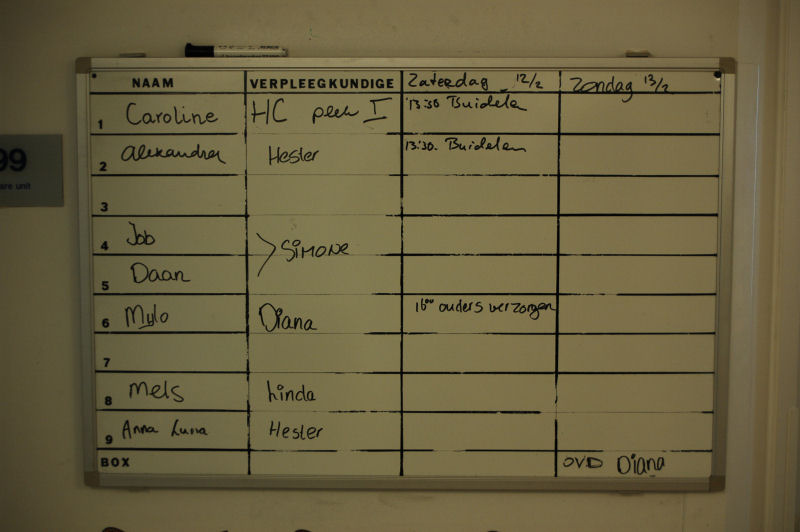 NAAM VERPLEEGKUNDIGE Zaterdag 12/2 Zondag 13/2
1 Caroline HC piek I 13:30 Buidelen
2 Alexandra Hester 13:30. Buidelen
3
4 Job
> SiMONe
5 Daan
6 Mylo Diana 1600 ouders verzorgen
7
8 Mels Linda
9 Anna Luna Hester
BOX OVD Diana
99
are unit